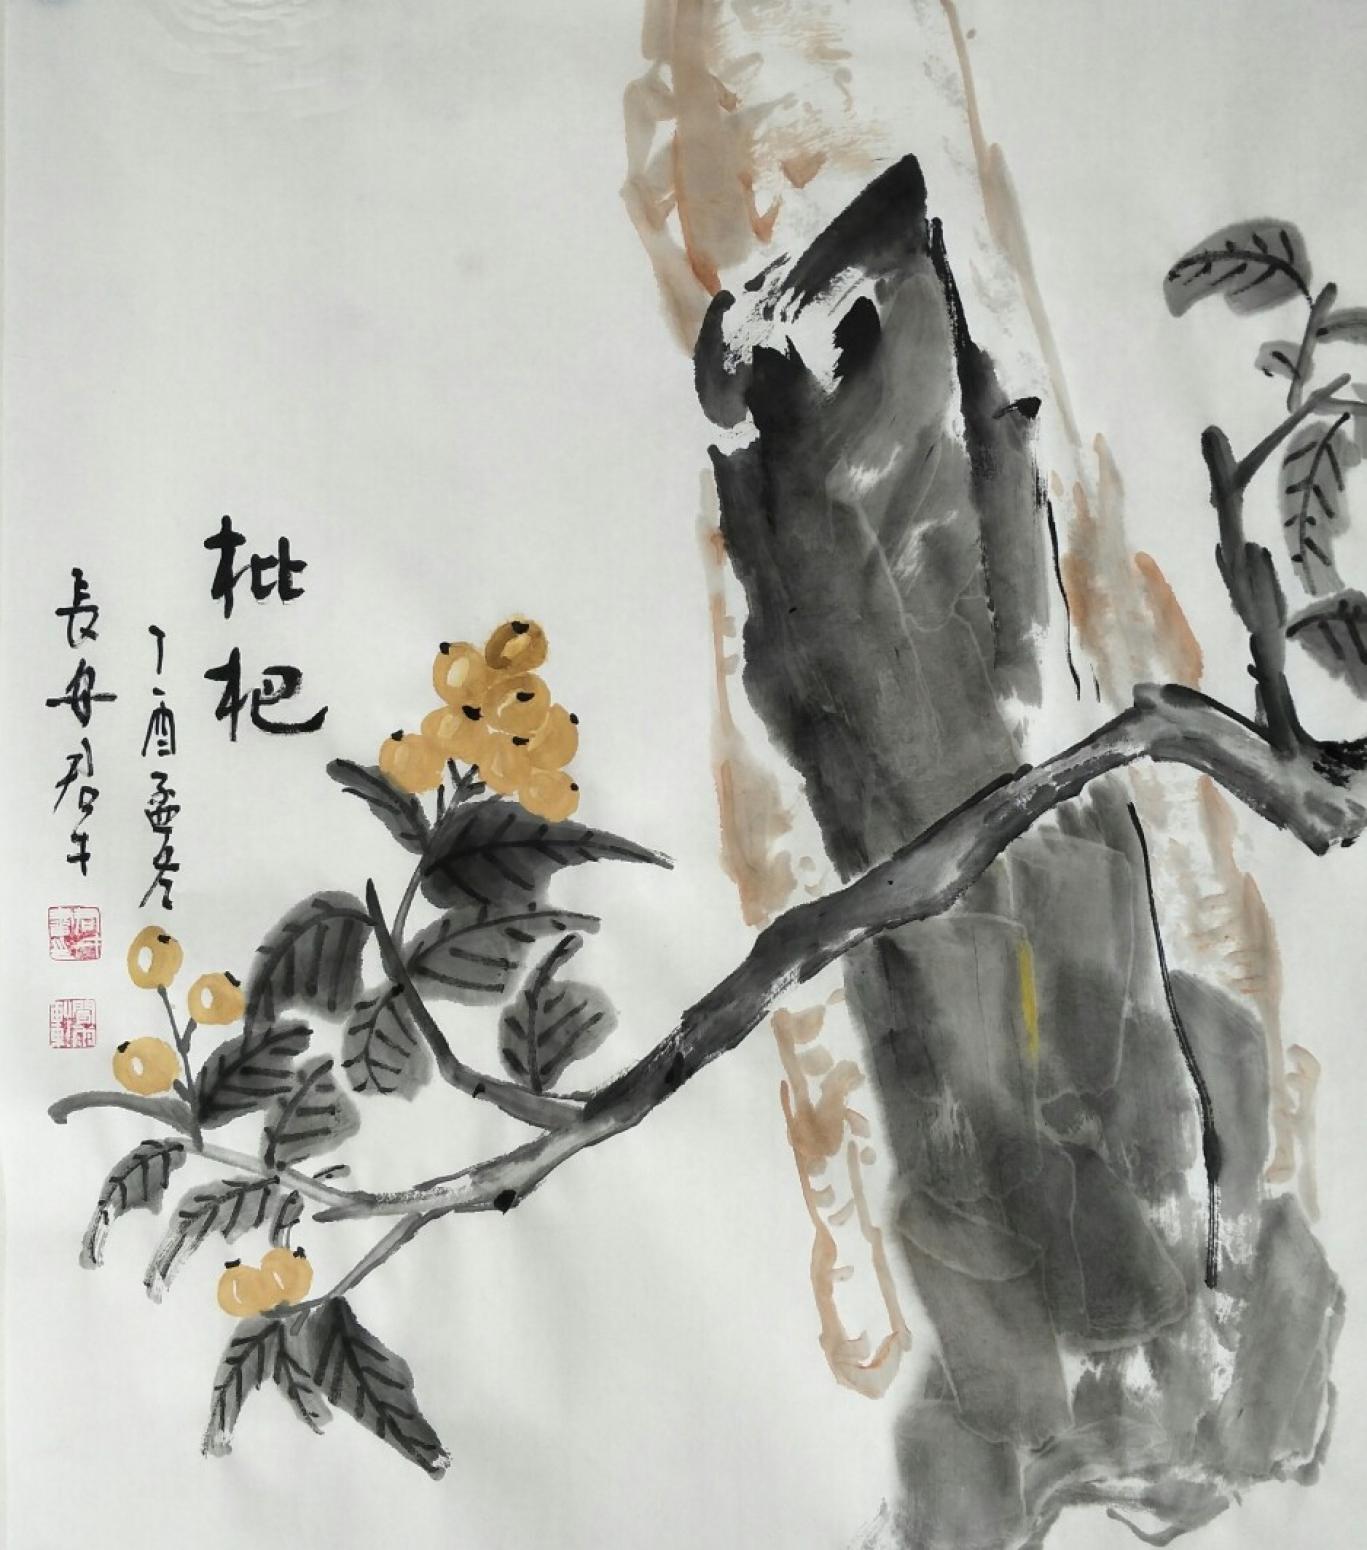 枇杷
丁酉孟冬
長安君平